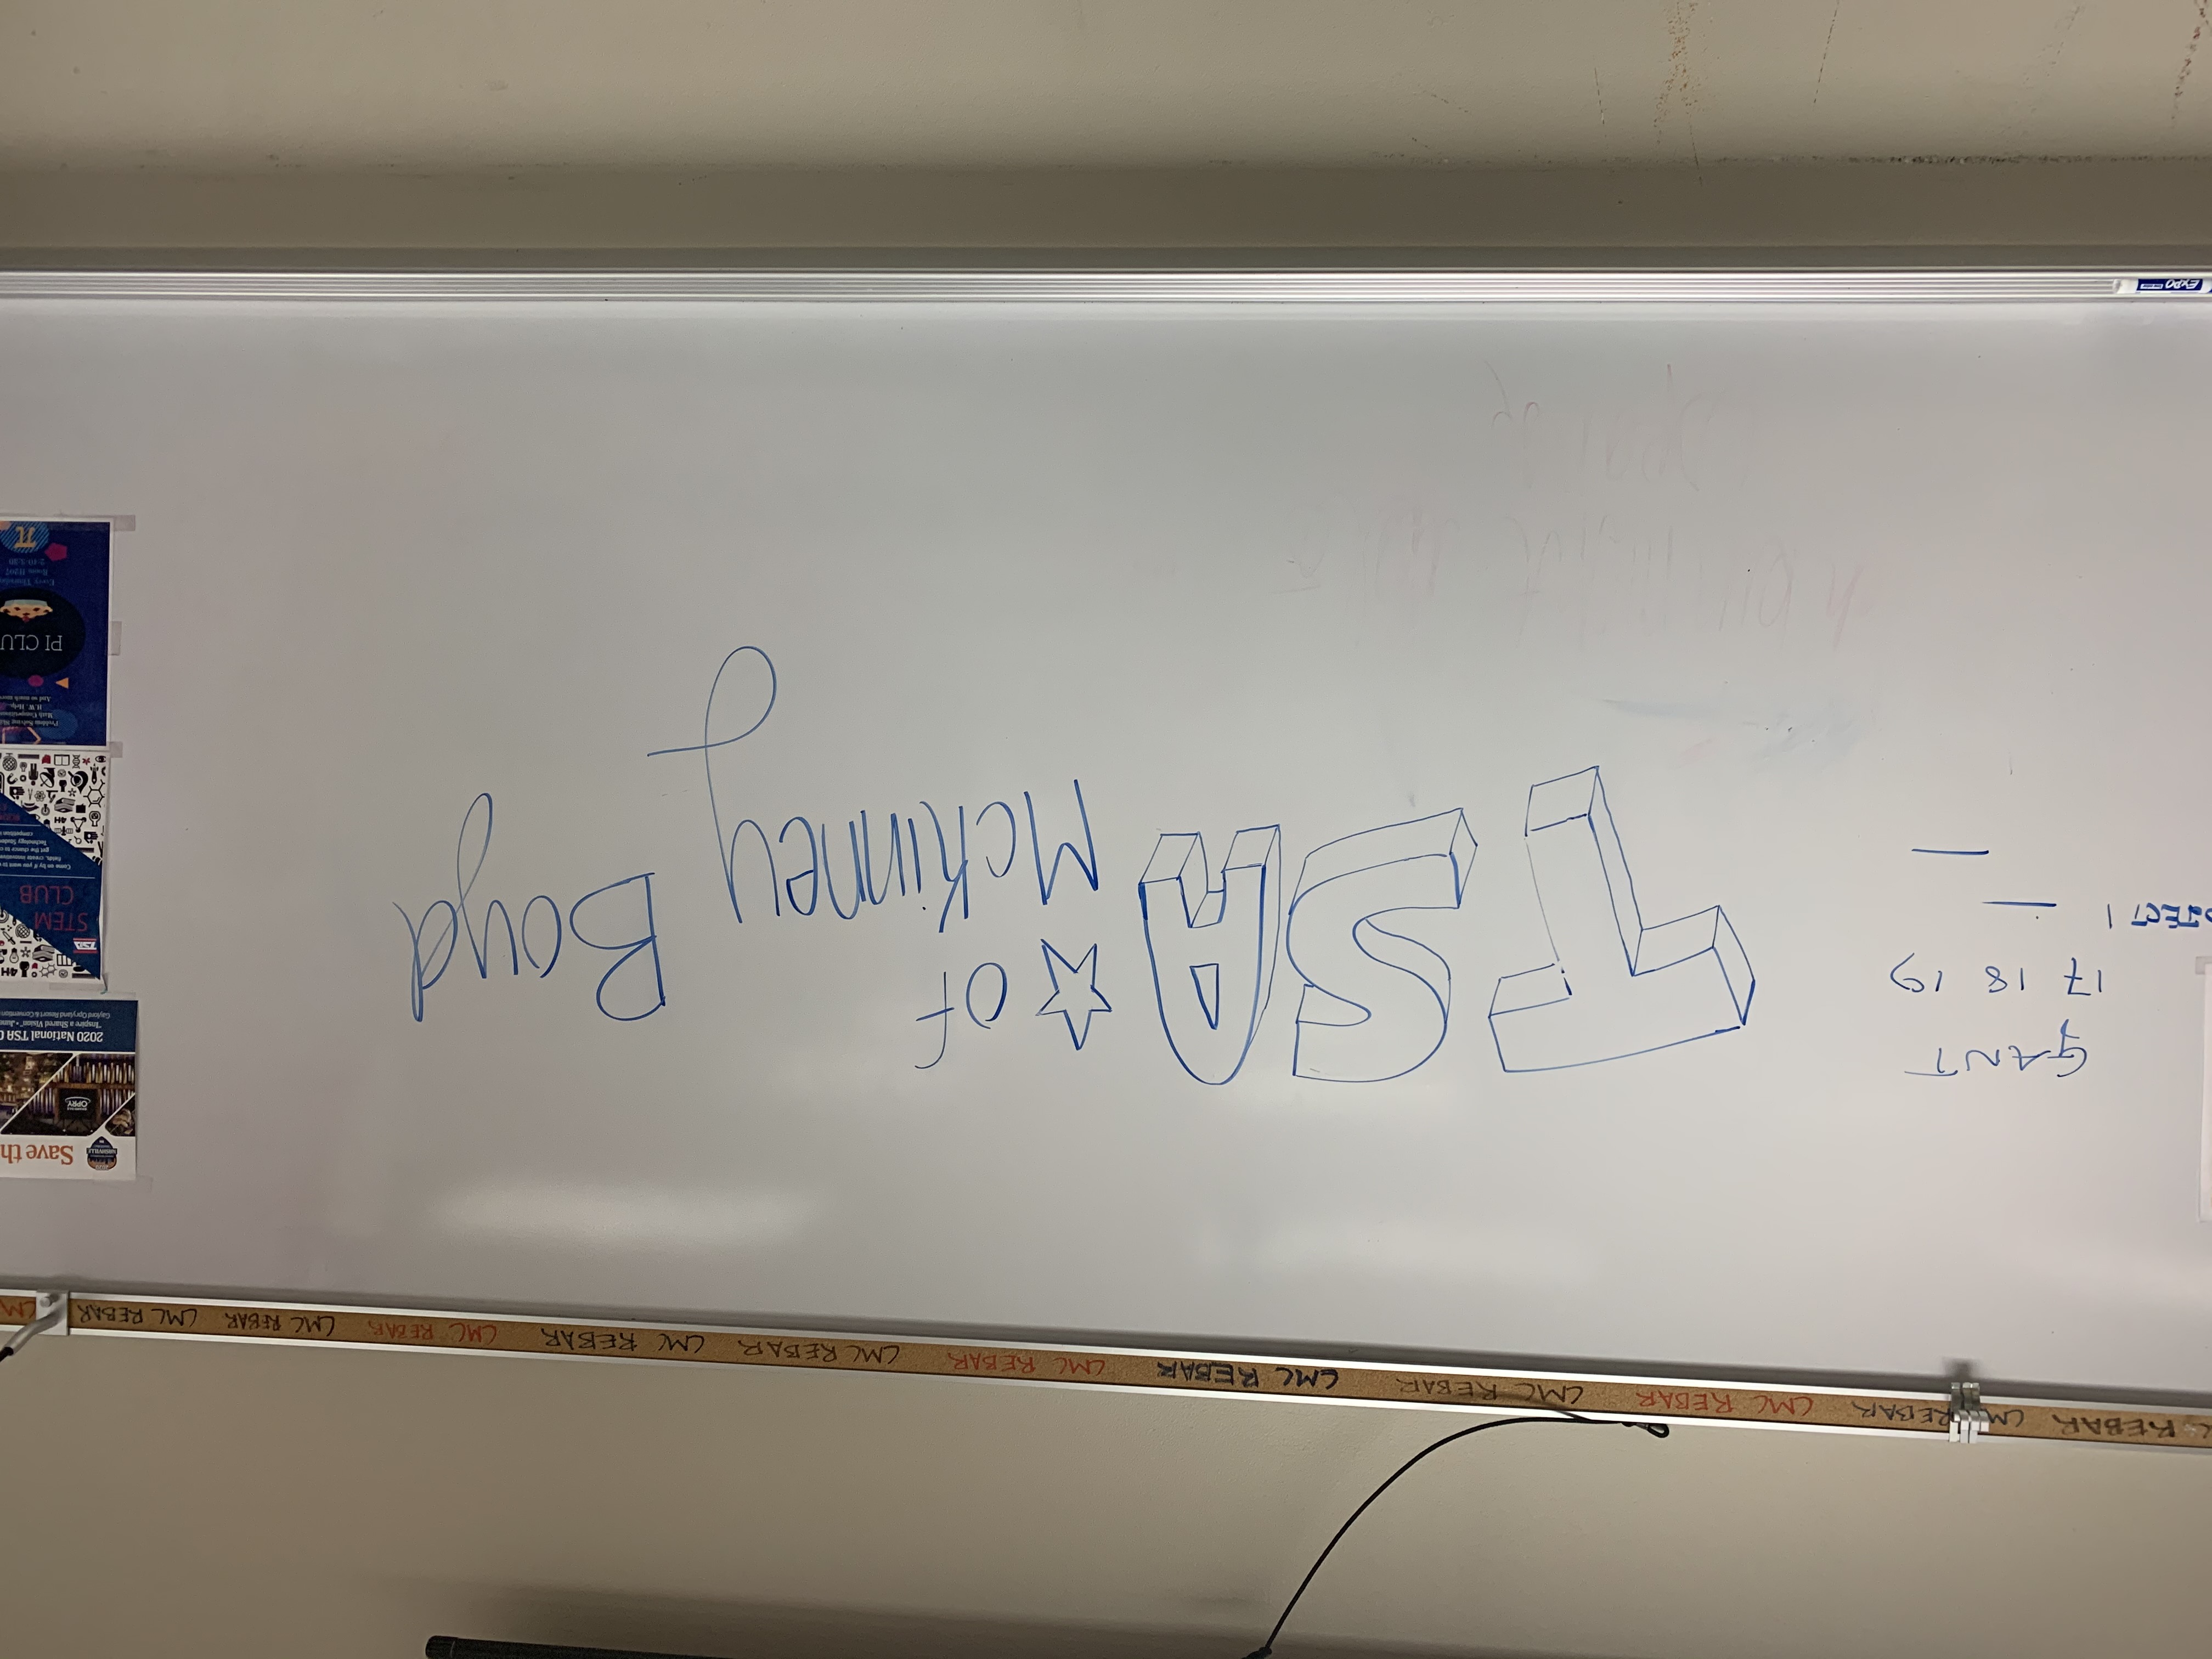 REBAR CMC REBAR CMC REBAR CMC REBAR CMC REBAR CMC REBAR CMC REBAR CMC REBAR CMC REBAR CMC REBAR CMC REBAR
GANT
17 18 19
OJECT 1
TSA of
McKinney Boyd
EXPO
Save th
NASHVILLE
OPRY
2020 National TSA C
"Inspire a Shared Vision" • June
Gaylord Opryland Resort & Convention
4H
TSA
STEM
CLUB
Come on by if you want to
fields, create innovative
get the chance to
Technology Stude
competition
4H
Problem Solving Ski
Math Competition
H.W. Help
And so much more
PI CLU
Every Thursda
Room H207
2:40-3:30
π